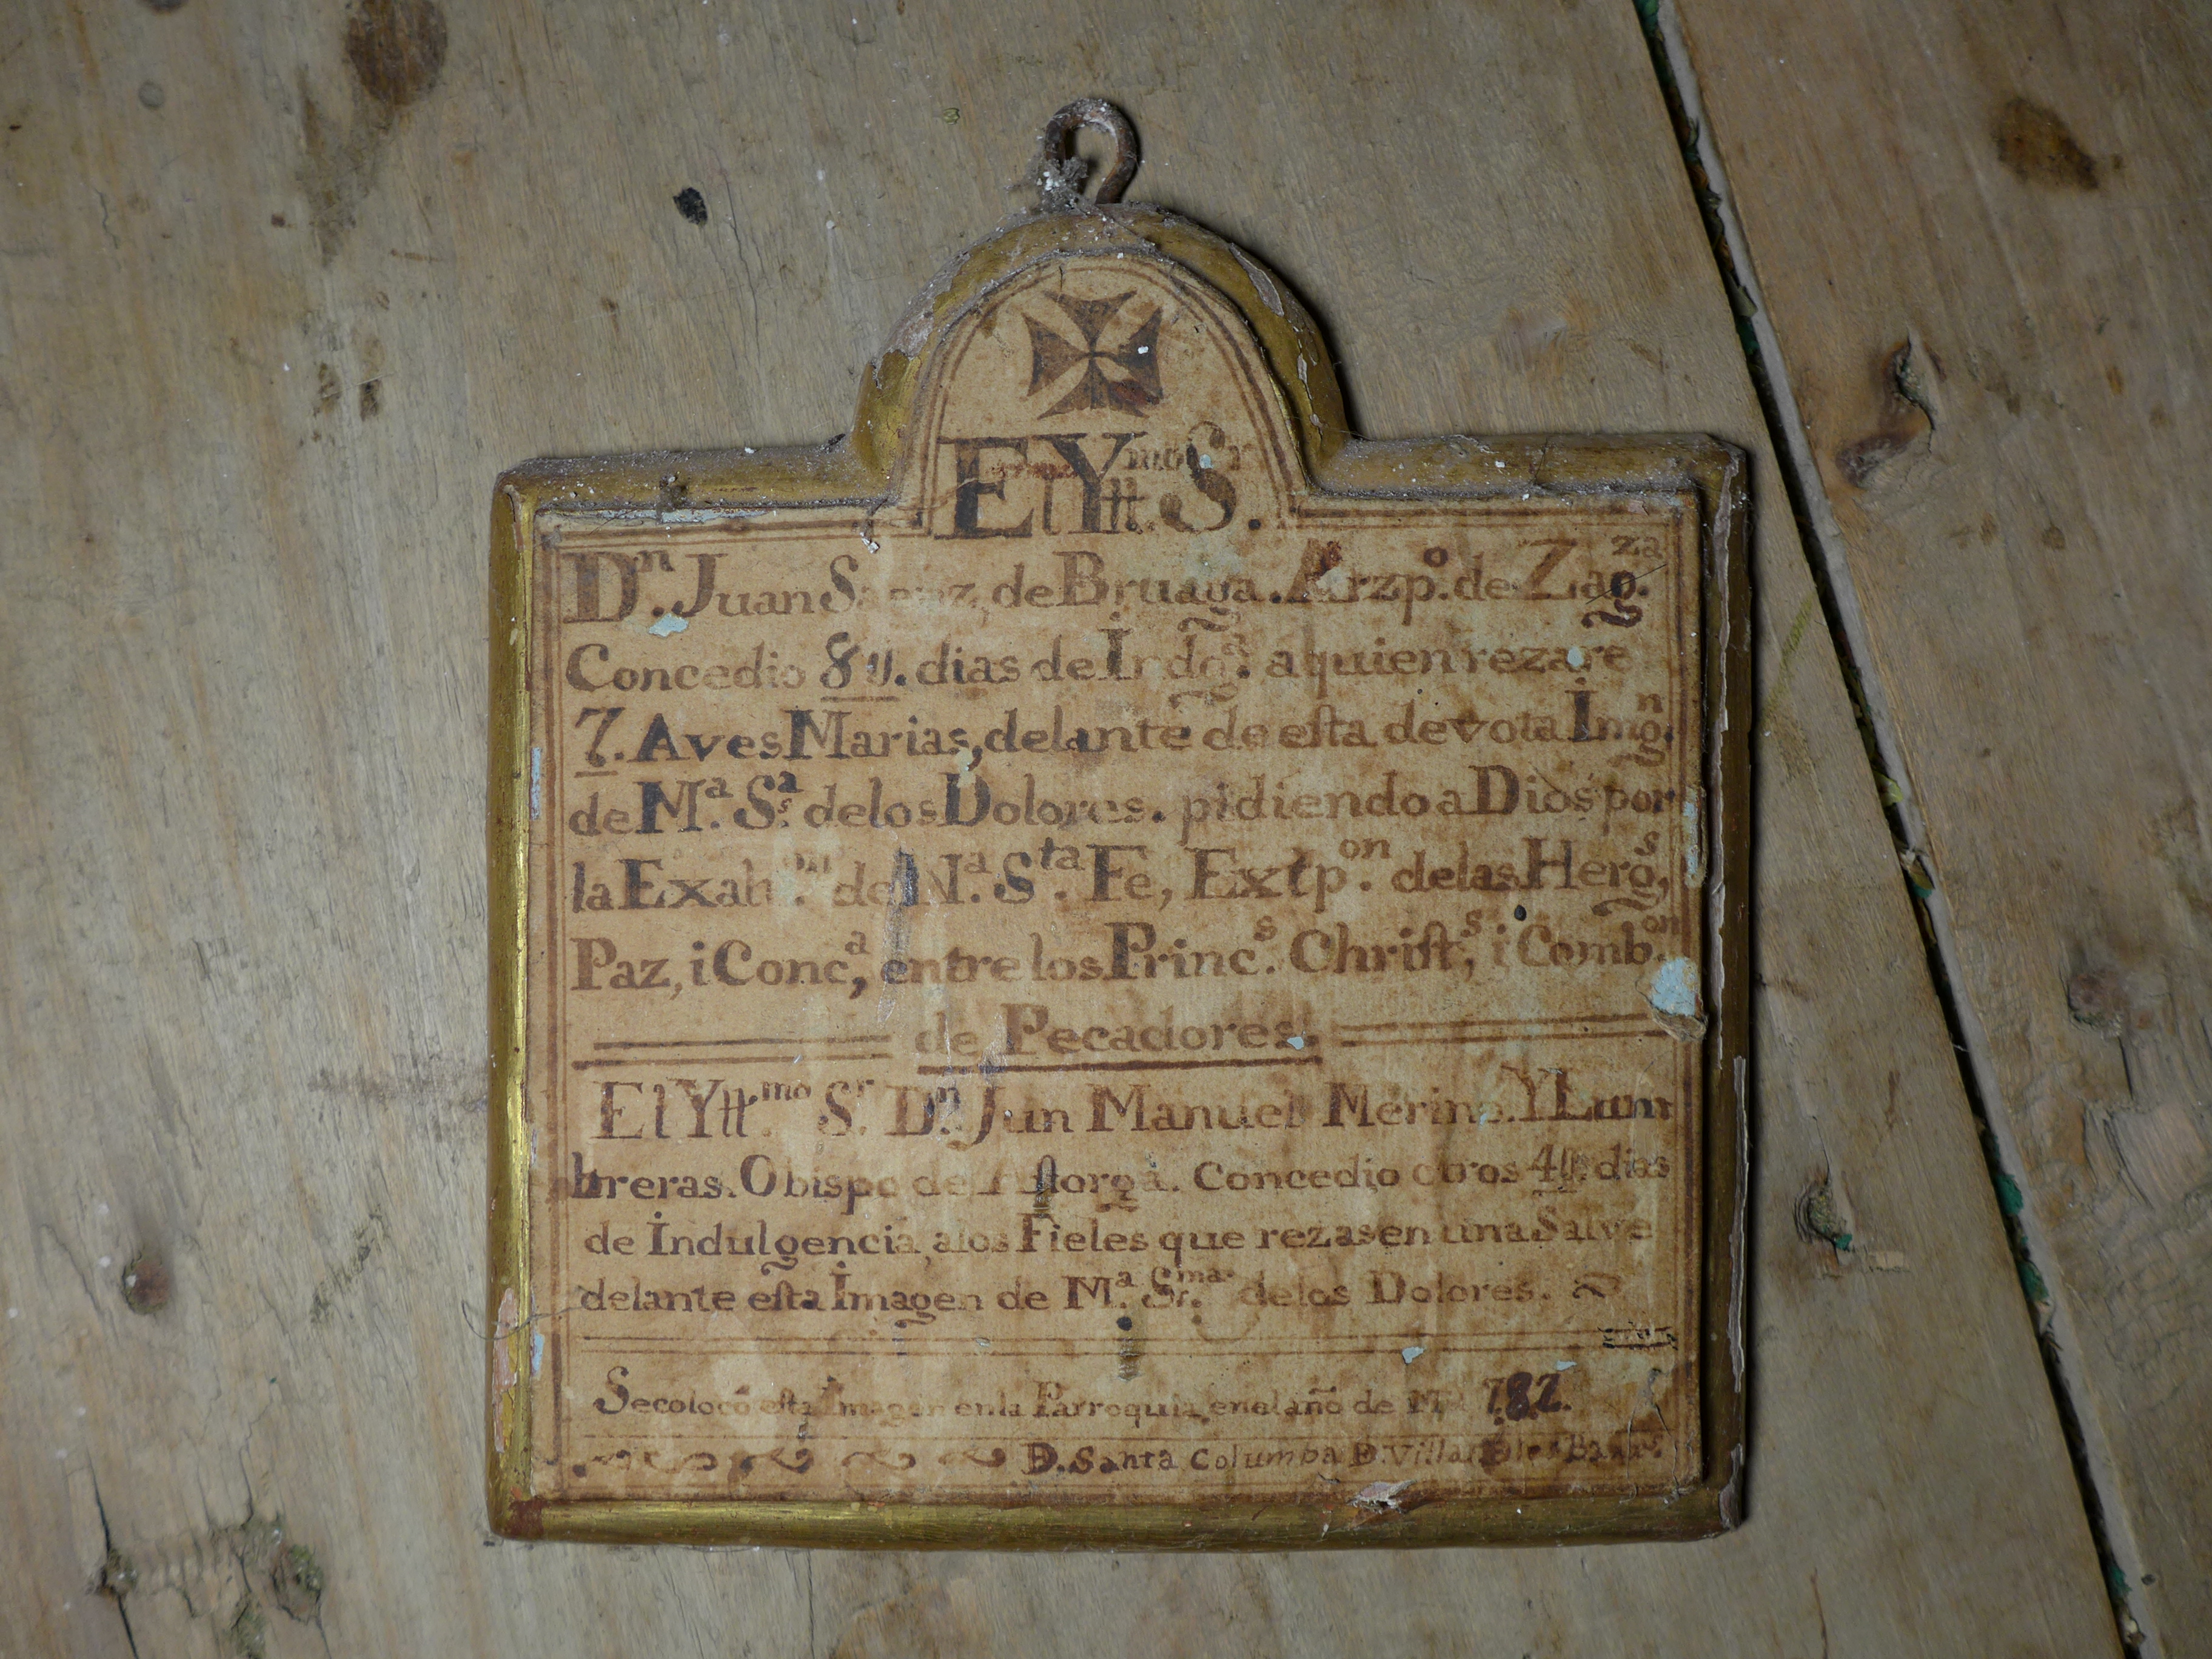 El Yltt.mo S.r
D.n Juan Saenz, de Bruaga. Arzp.o de Zag.za
Concedio 80. dias de Indg.s a quien rezare
7. Aves Marias, delante de eſta devota Img.n
de M.a S.a de los Dolores. pidiendo a Dios por
la Exalt.on de N.a S.ta Fe, Extp.on de las Herg.s,
Paz, i Conc.a, entre los Princ.s Chriſt.s, i Comb.on
de Pecadores.
El Yltt.mo S.r D.n Jun Manuel Merino. Y Lum
breras. Obispo de Aſtorga. Concedio otros 40. dias
de Indulgencia, a los Fieles que rezasen una Salve
delante eſta Imagen de M.a S.ma de los Dolores.
Se colocó eſta Imagen en la Parroquia, en el año de M 782.
D. Santa Columba D.